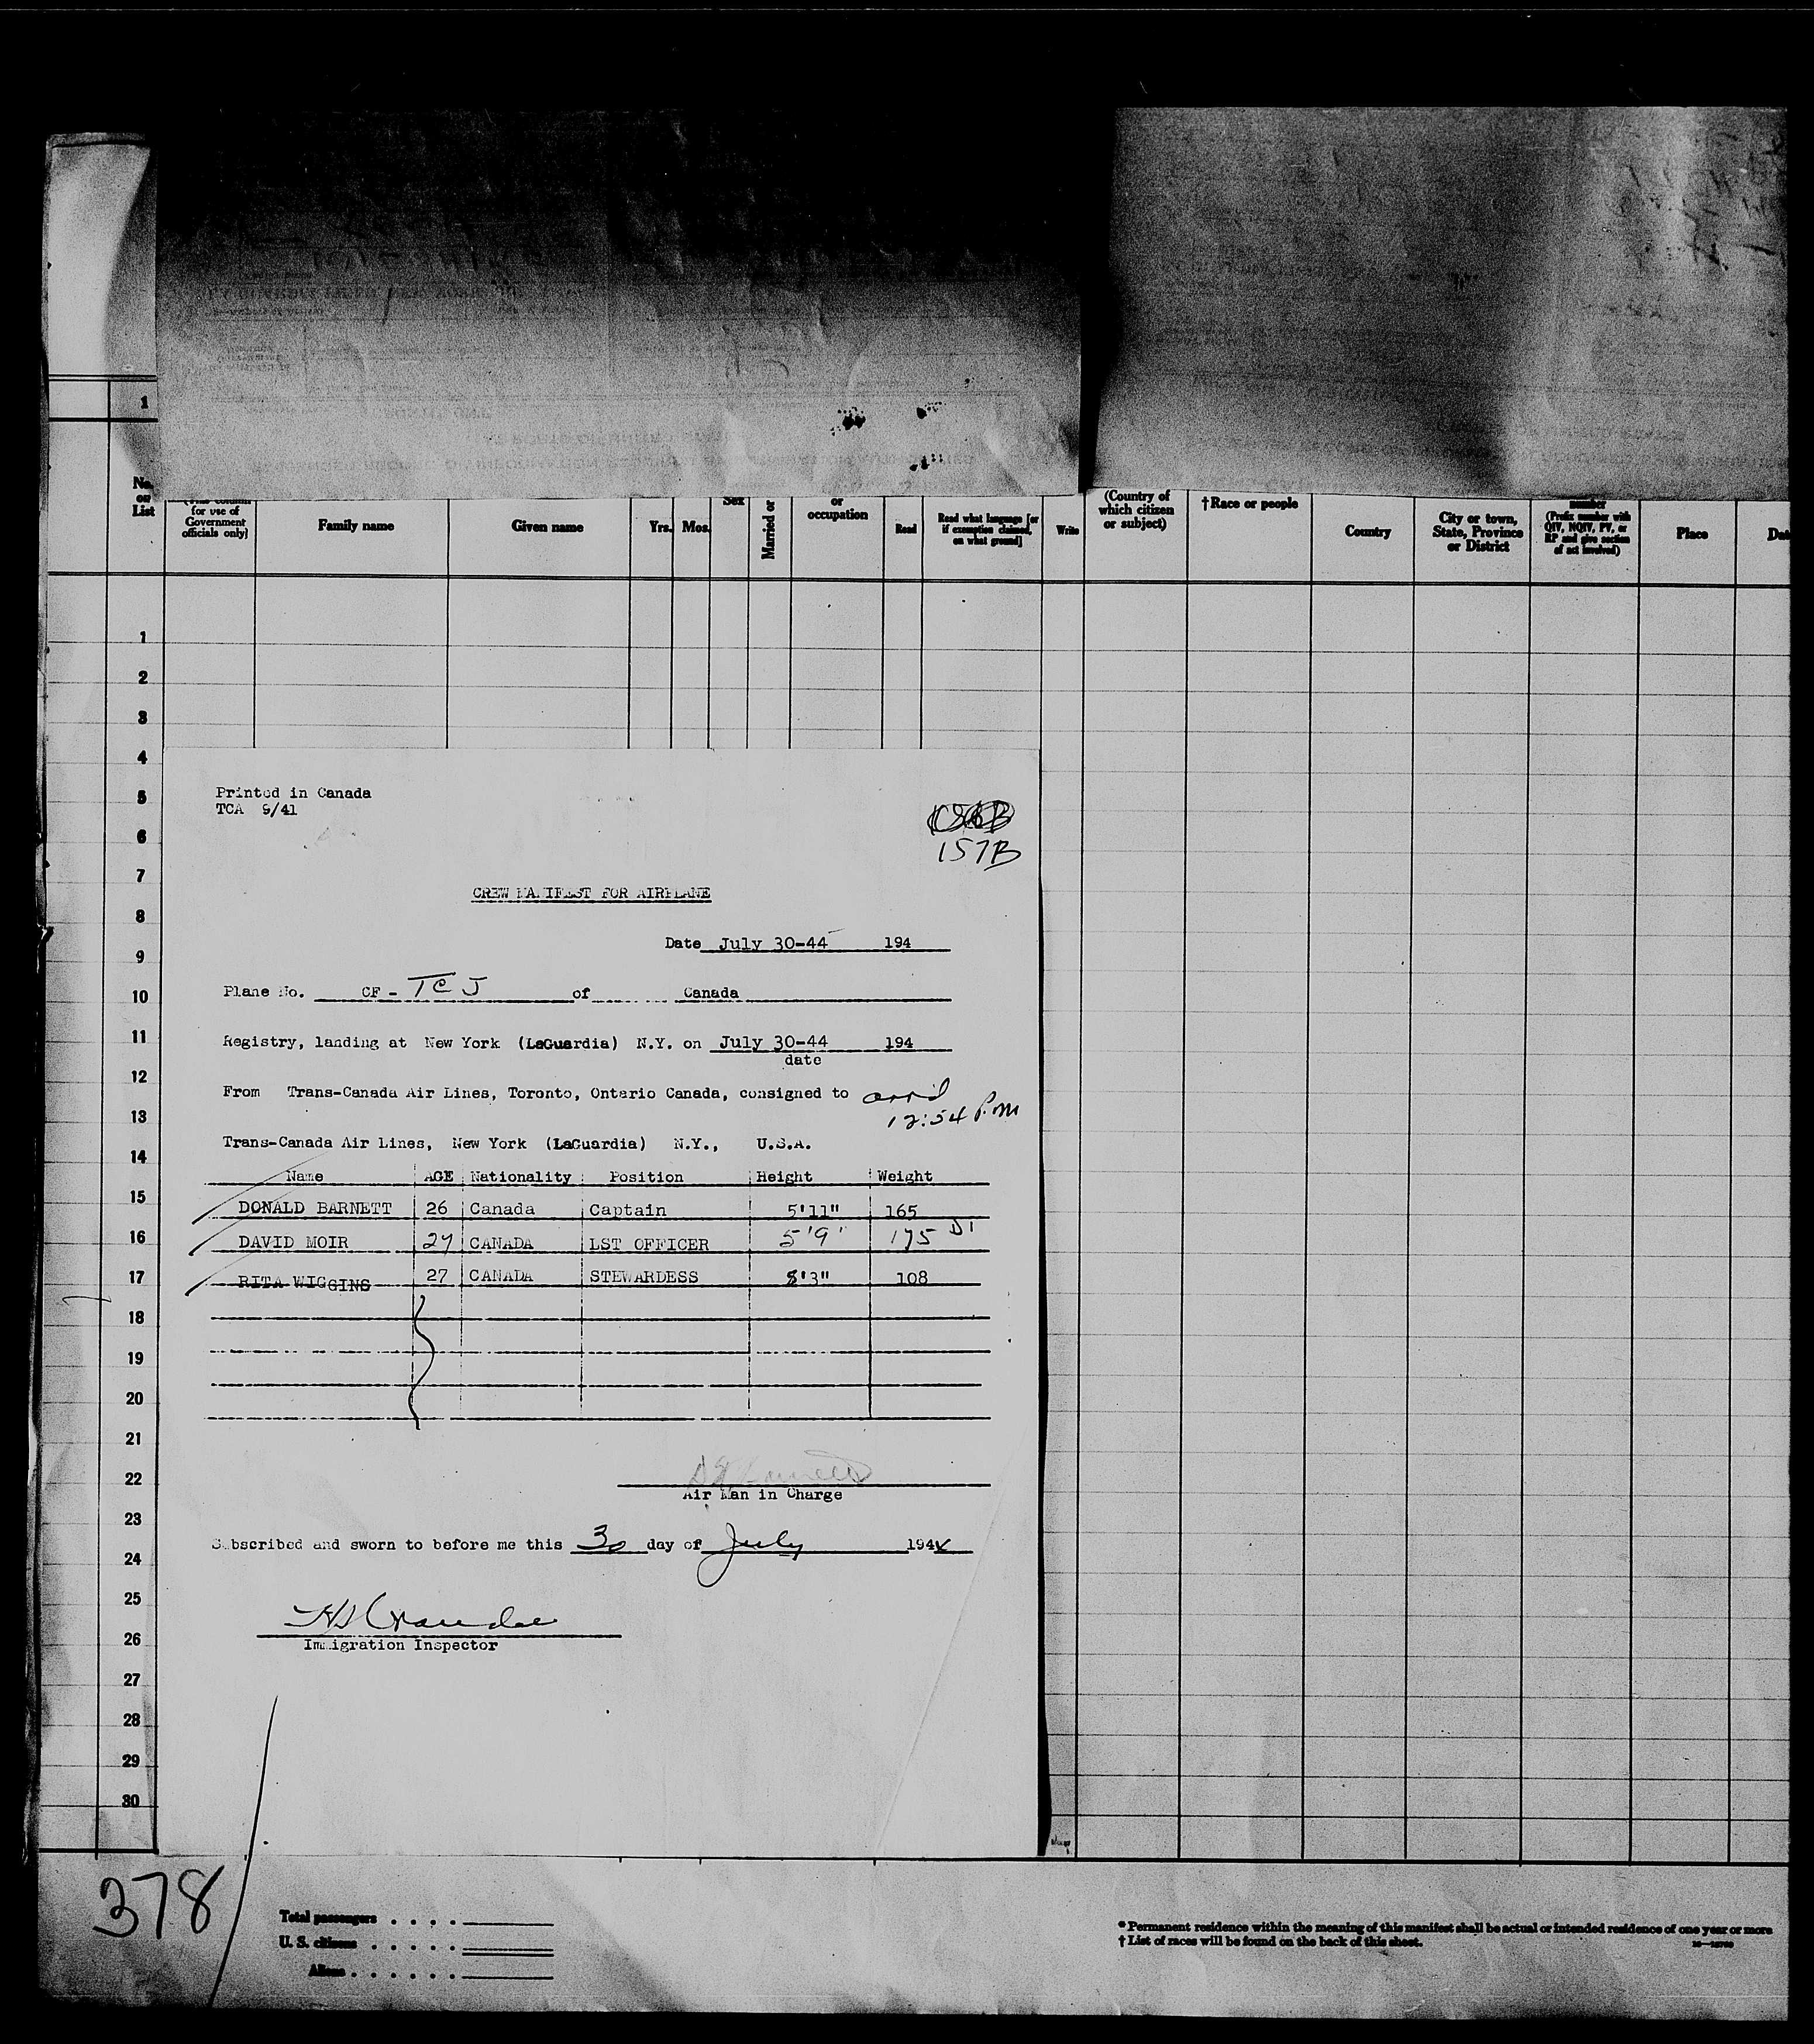 1
No. on List
for use of Government officials only]
Family name
Given name
Yrs.
Mos.
Sex
Married or
or occupation
Read
Read what language [or if exemption claimed, on what ground]
Write
(Country of which citizen or subject)
† Race or people
Country
City or town, State, Province or District
number (Prefix number with QIV, NQIV, PV, or RP and give section of act involved)
Place
1
2
3
4
5
6
7
8
9
10
11
12
13
14
15
16
17
18
19
20
21
22
23
24
25
26
27
28
29
30
Printed in Canada
TCA 9/41
157B
CREW MANIFEST FOR AIRPLANE
Date July 30-44 194
Plane No. CF - TCJ of Canada
Registry, landing at New York (LaGuardia) N.Y. on July 30-44 194
date
From Trans-Canada Air Lines, Toronto, Ontario Canada, consigned to arr'd
12:54 P.m
Trans-Canada Air Lines, New York (LaGuardia) N.Y., U.S.A.
Name AGE Nationality Position Height Weight
DONALD BARNETT 26 Canada Captain 5'11" 165
DAVID MOIR 27 CANADA LST OFFICER 5'9" 175
RITA WIGGINS 27 CANADA STEWARDESS 5'3" 108
Air Man in Charge
Subscribed and sworn to before me this 30 day of July 1944
Immigration Inspector
378
Total passengers . . . .
U. S. citizens . . . . .
Aliens . . . . . .
* Permanent residence within the meaning of this manifest shall be actual or intended residence of one year or more
† List of races will be found on the back of this sheet.